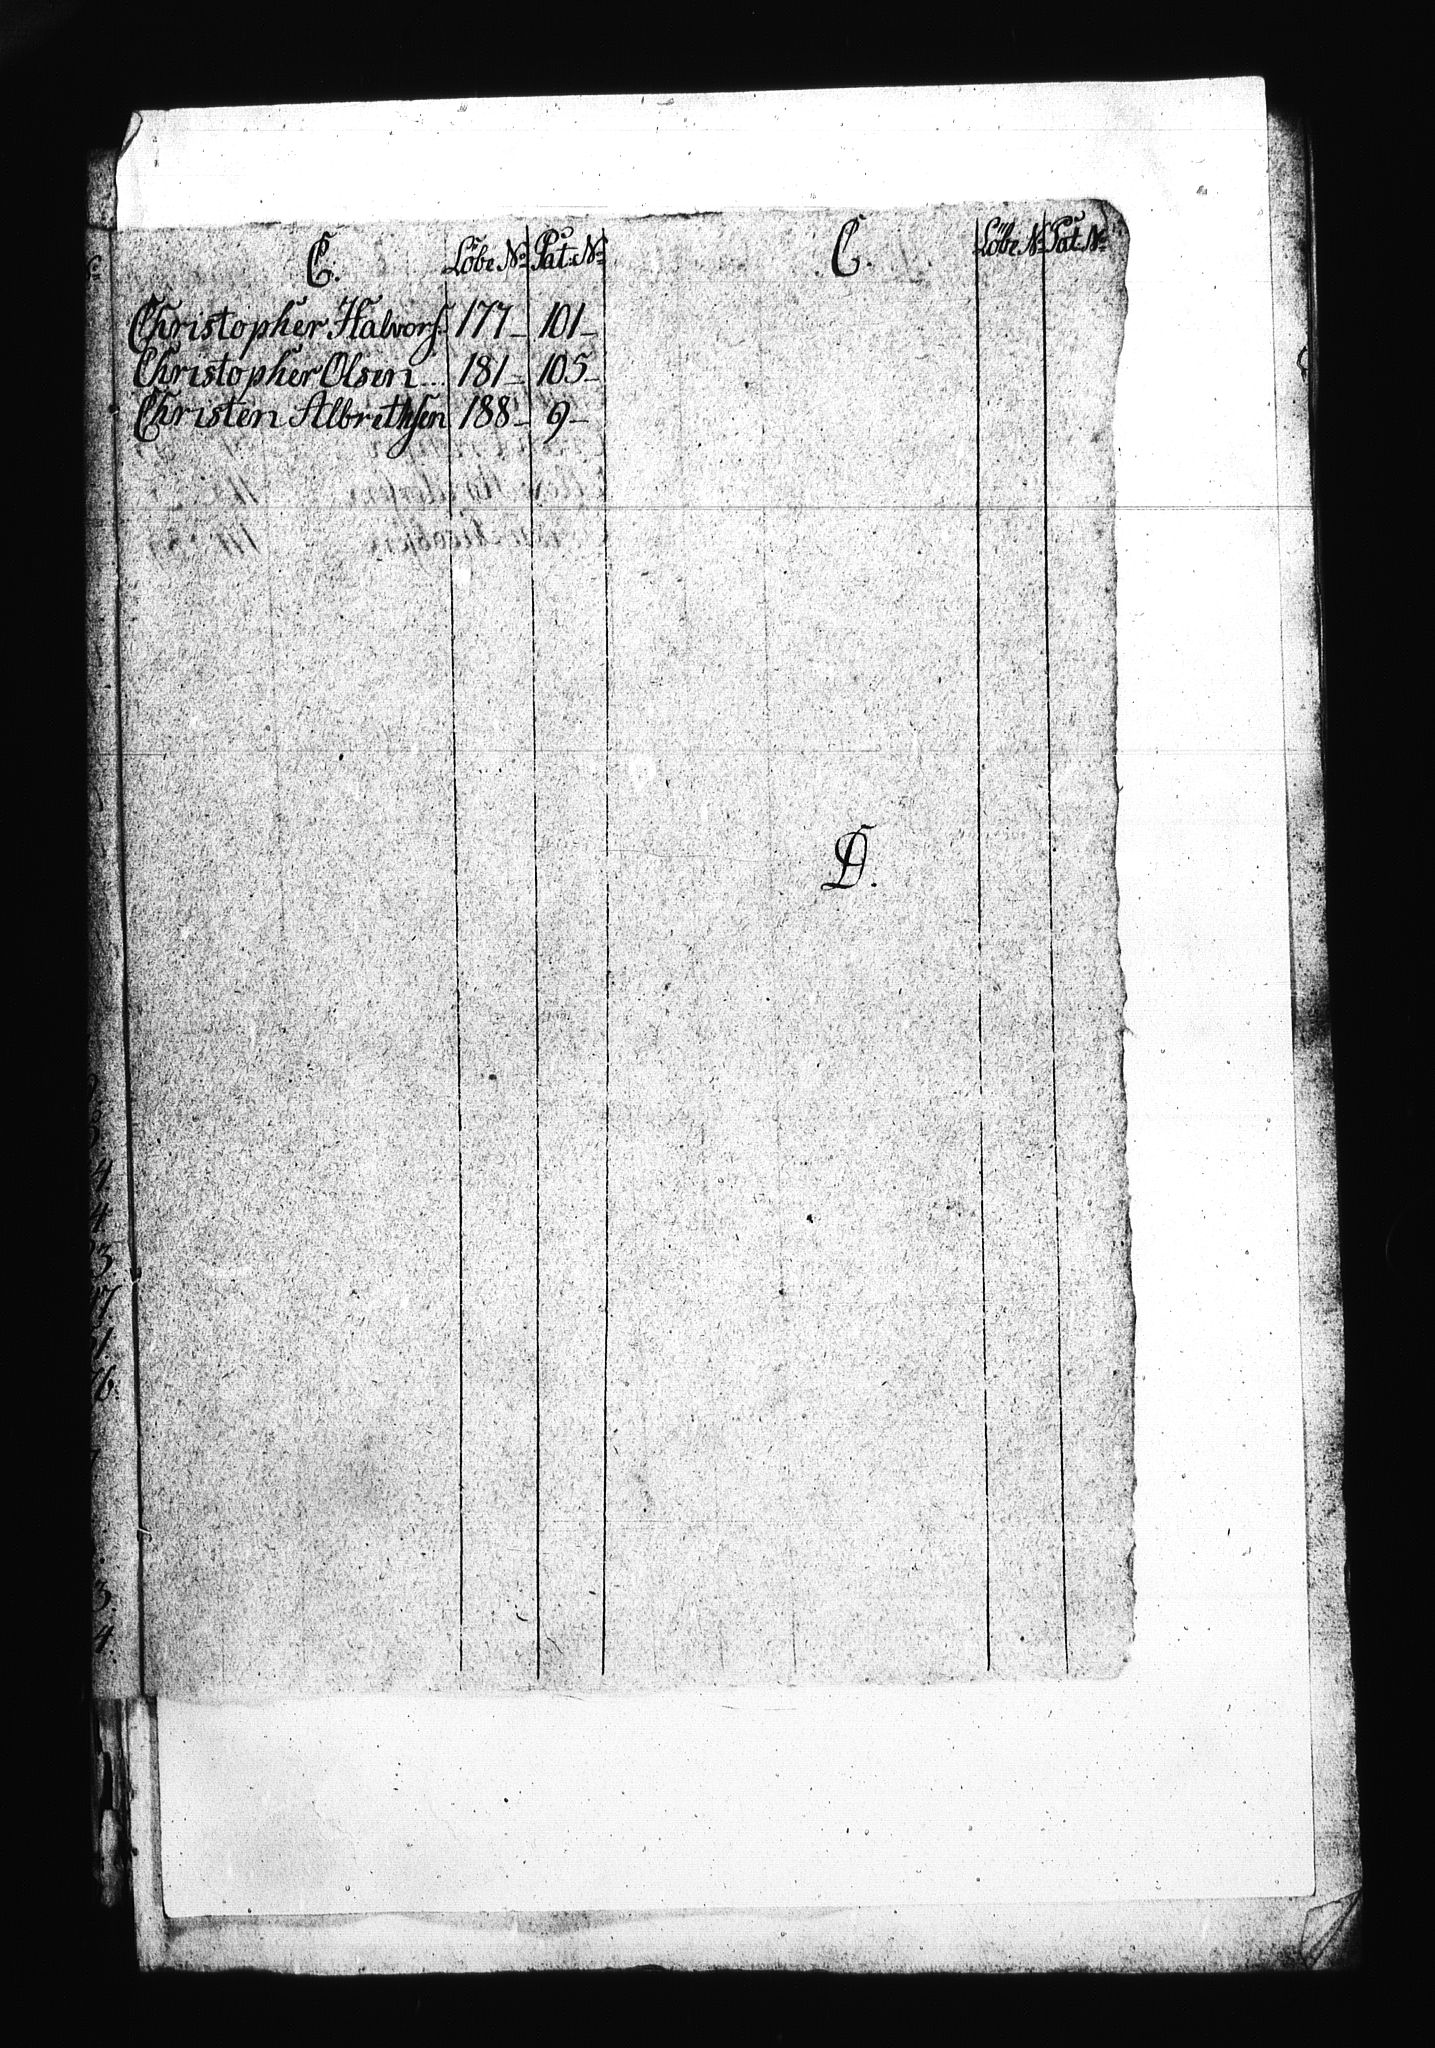 C. Löbe No Pat: No
Christopher Halvors: 177 101
Christopher Olsen 181 105
Christen Albrethsen 188 9
C. Löbe No Pat: No
D.